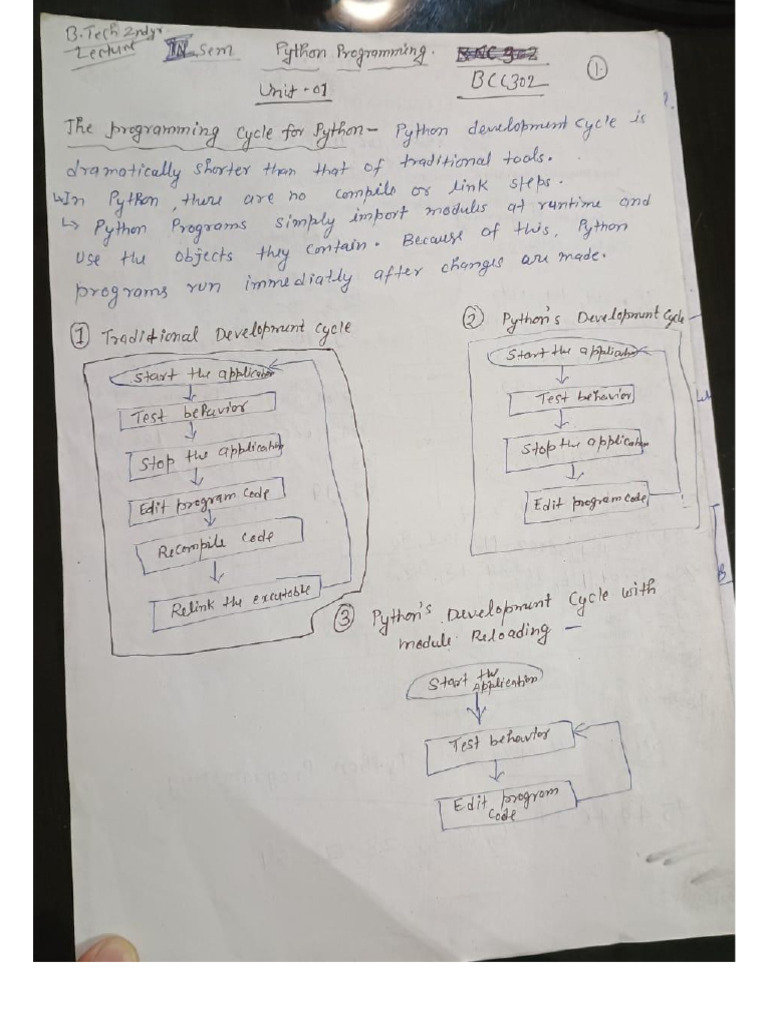 B.Tech 2nd yr.
Lecture IV Sem Python Programming. BNC 302
Unit - 01 BCC302 1.
The programming cycle for Python - Python development cycle is
dramatically shorter than that of traditional tools.
↳ In Python, there are no compile or link steps.
↳ Python Programs simply import modules at runtime and
use the objects they contain. Because of this, Python
programs run immediatly after changes are made.
1 Traditional Development Cycle
Start the application
Test behavior
Stop the application
Edit program code
Recompile code
Relink the executable
2 Python's Development Cycle -
Start the application
Test behavior
Stop the application
Edit program code
3 Python's Development Cycle with
module Reloading -
Start the
Application
Test behavior
Edit program
code